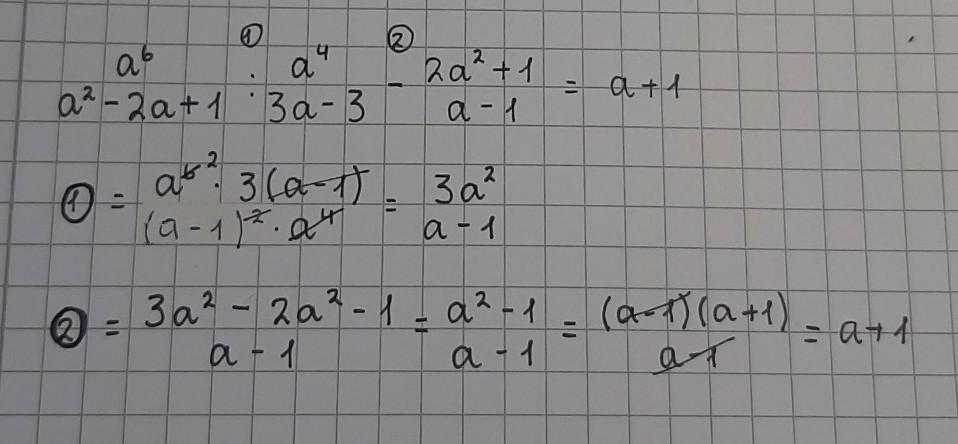 ① ②
a⁶/(a² - 2a + 1) : a⁴/(3a - 3) - (2a² + 1)/(a - 1) = a + 1
① = (a⁶ ² · 3(a - 1))/((a - 1)² · a⁴) = 3a²/(a - 1)
② = (3a² - 2a² - 1)/(a - 1) = (a² - 1)/(a - 1) = ((a - 1)(a + 1))/(a - 1) = a + 1